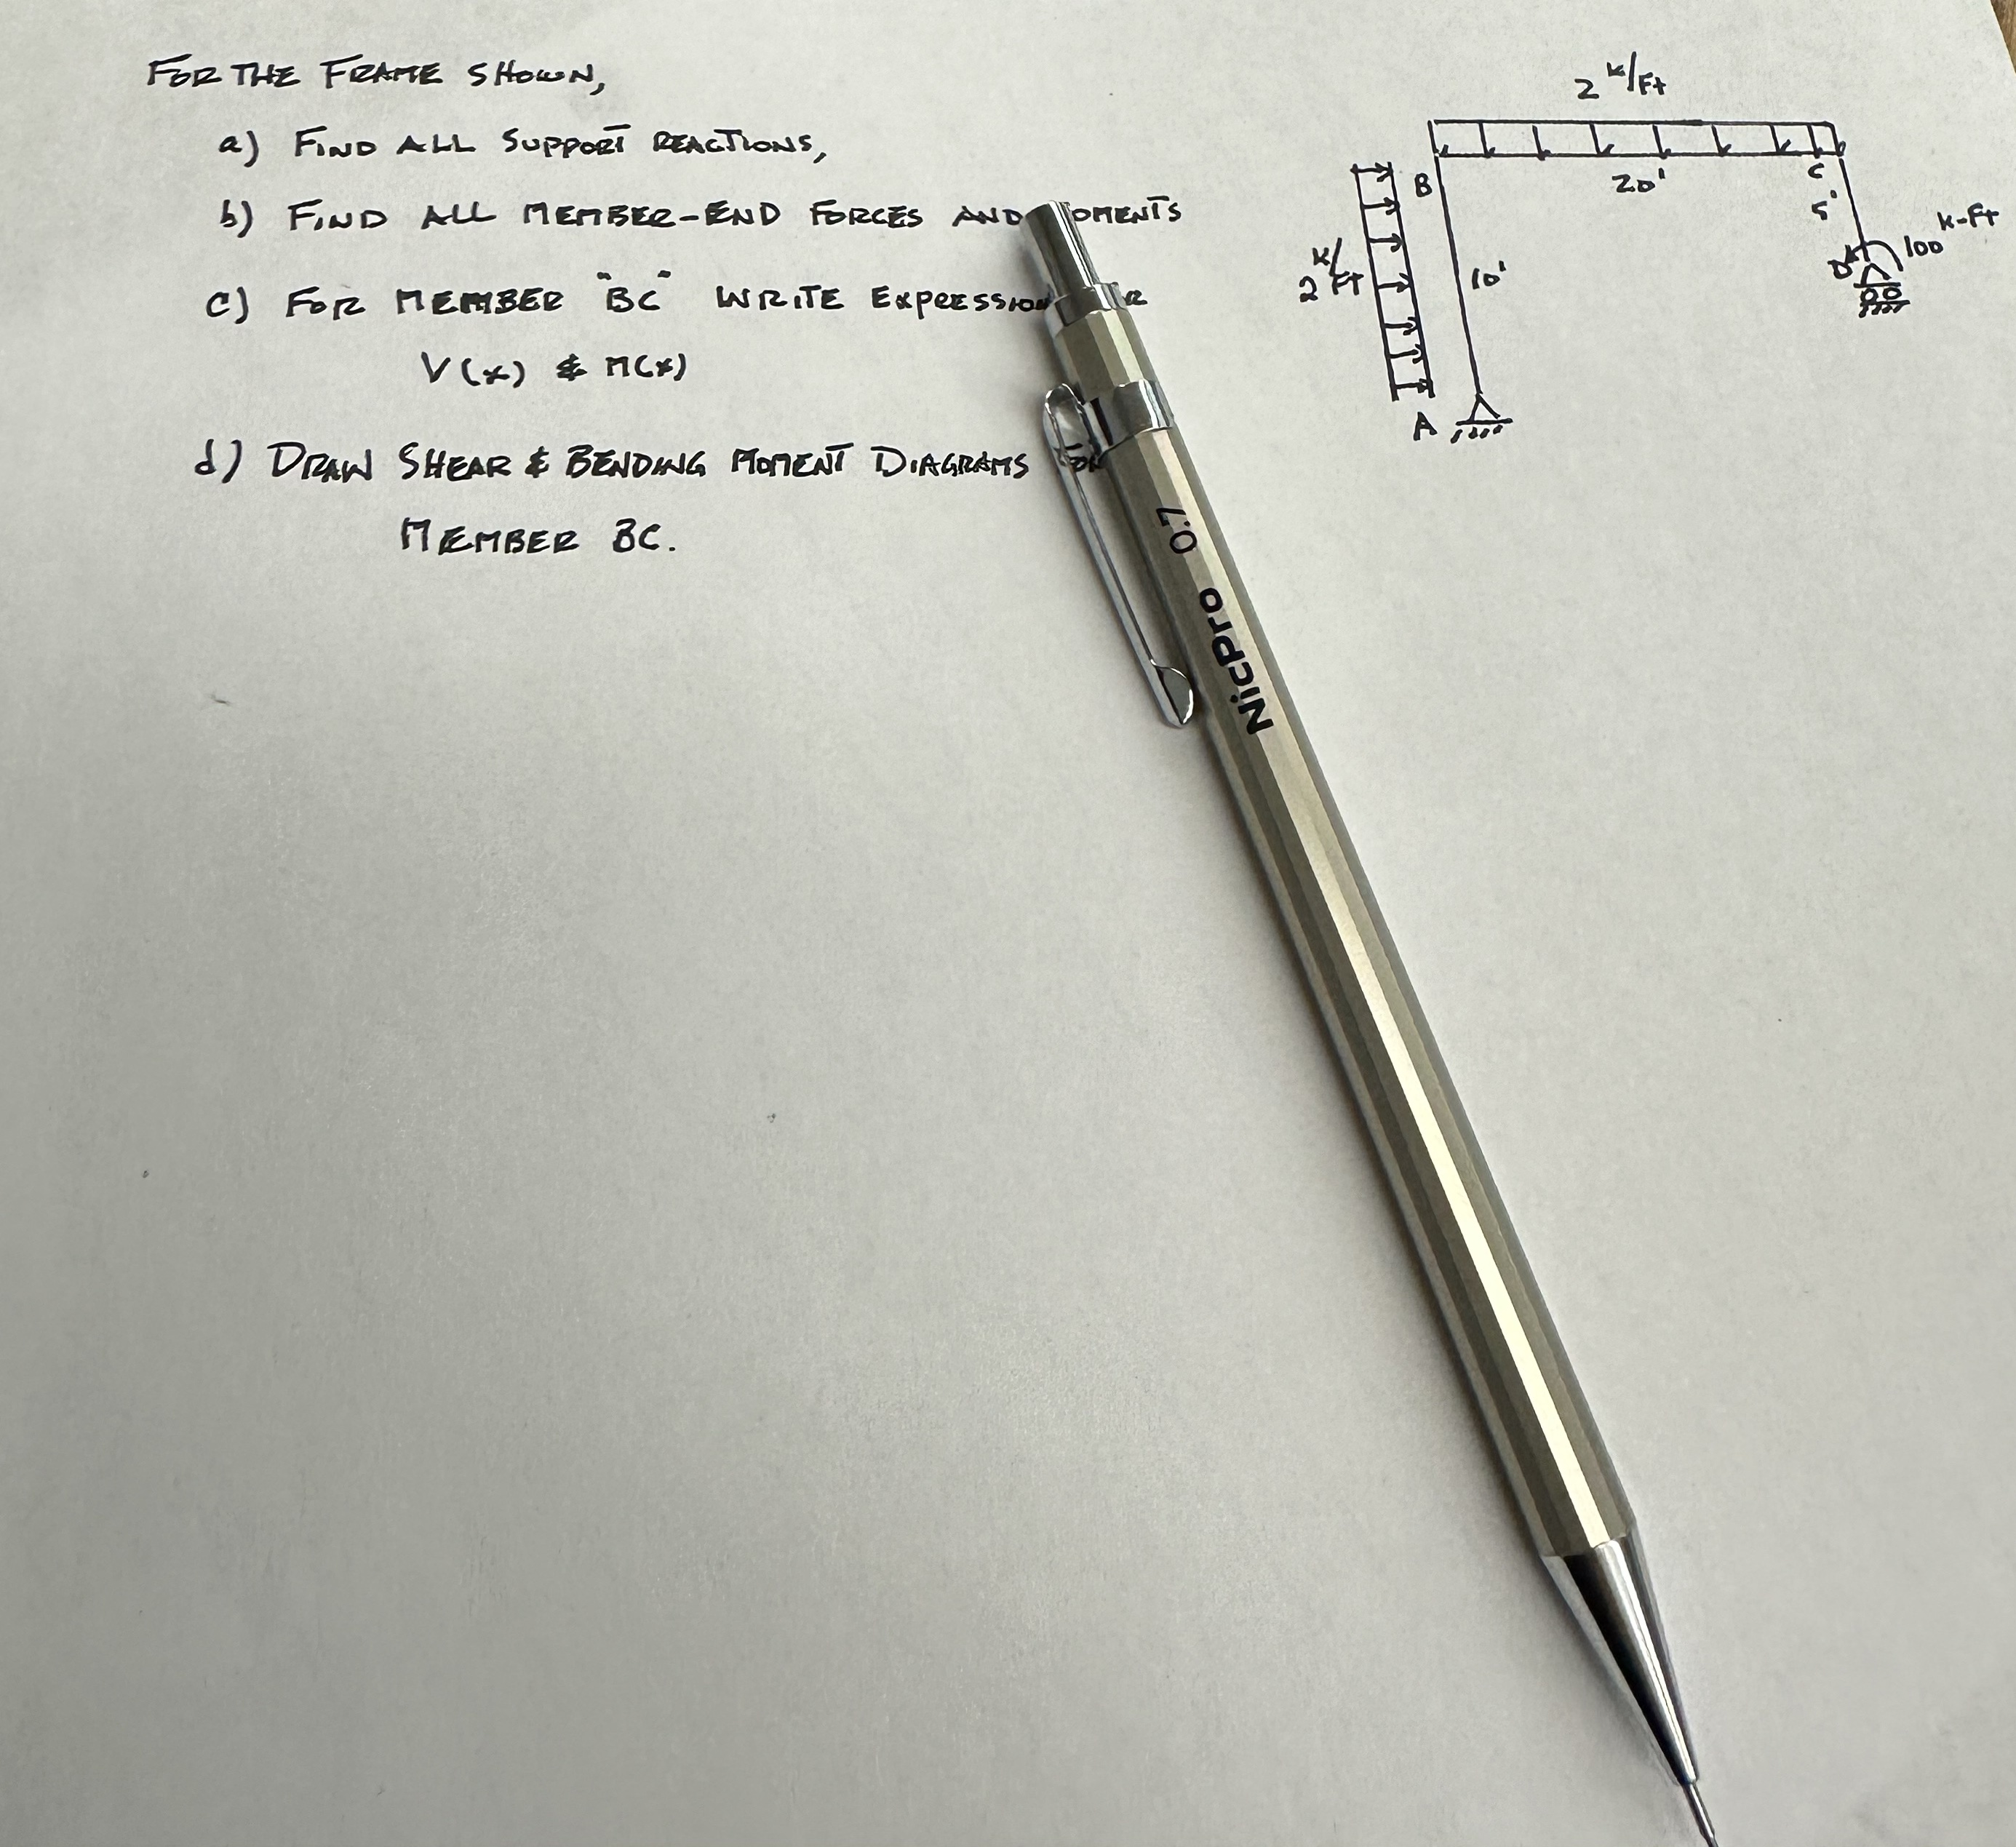 FOR THE FRAME SHOWN,
a) FIND ALL SUPPORT REACTIONS,
b) FIND ALL MEMBER-END FORCES AND OMENTS
c) FOR MEMBER "BC" WRITE EXPRESSION R
V(x) & M(x)
d) DRAW SHEAR & BENDING MOMENT DIAGRAMS
MEMBER BC.
2 K/Ft
B
20'
C
5'
100 K-Ft
D
2 K/Ft
10'
A
NicPro 0.7